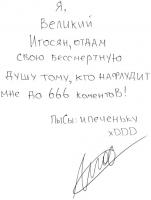 Я.
Великий
Игосян, отдам
свою бессмертную
душу тому, кто нафлудит
мне до 666 коментов!
ПыСы: и печеньку
xDDD